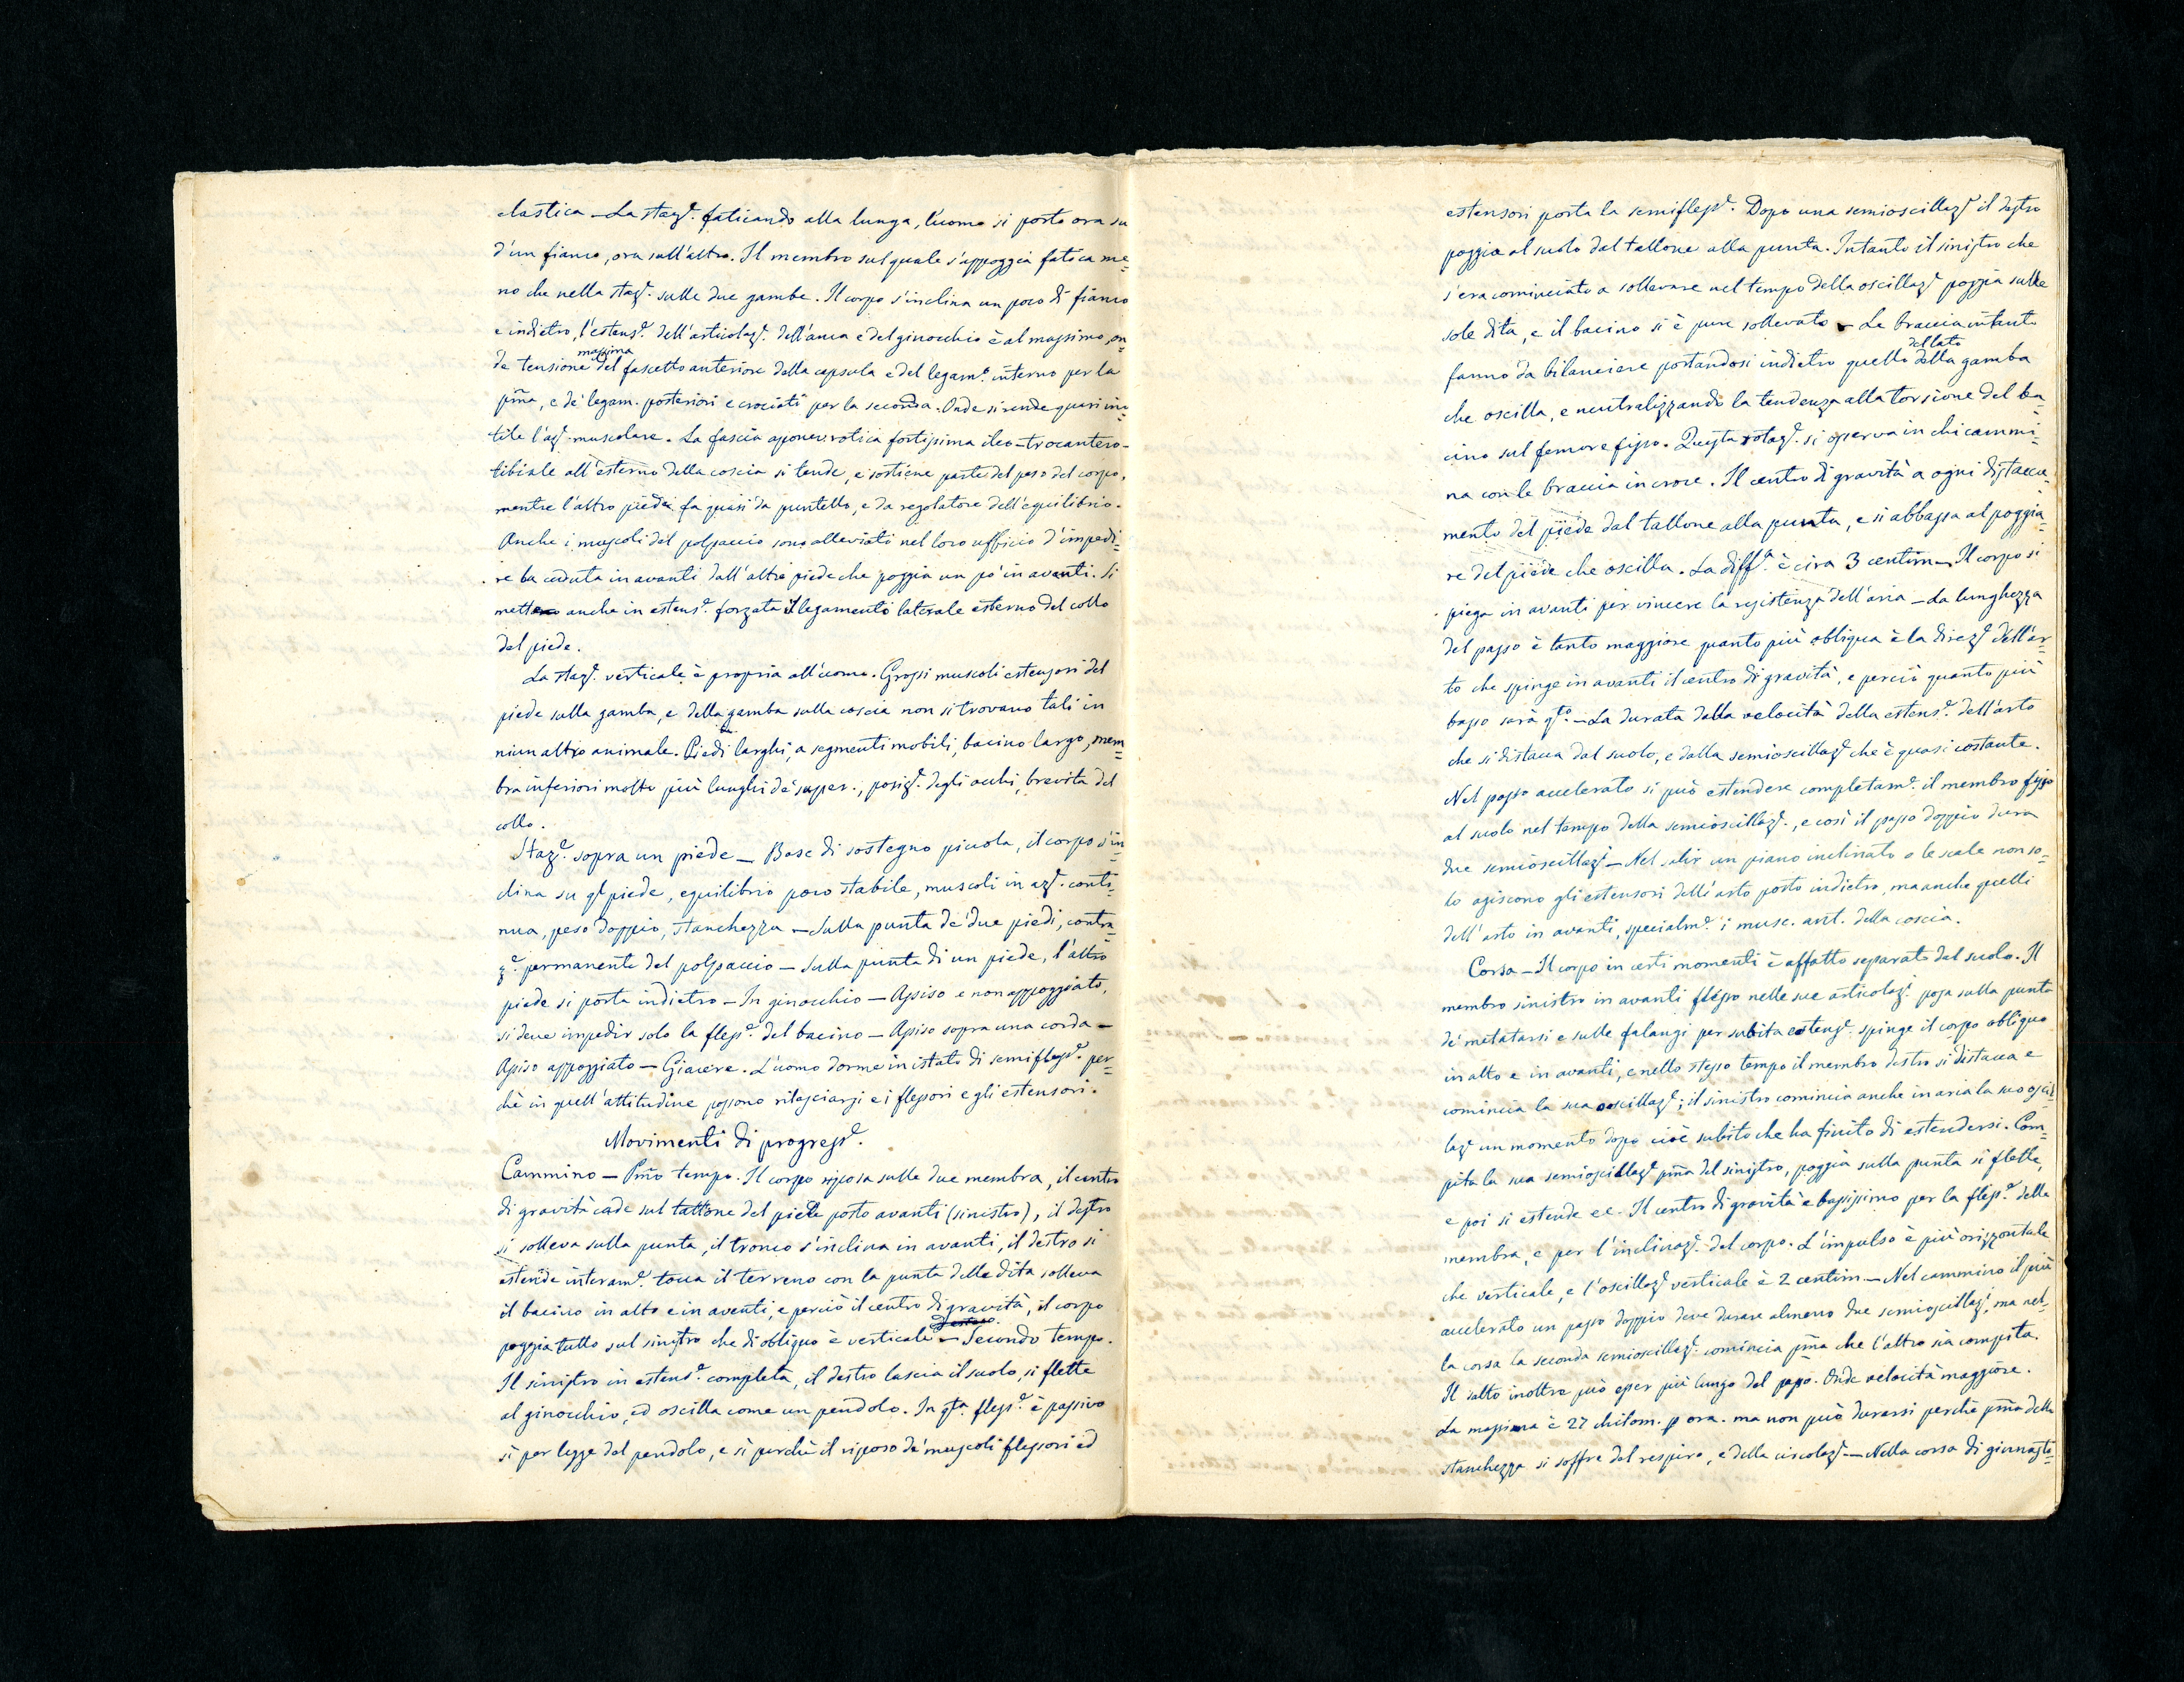 elastica – La staz.e faticando alla lunga, l'uomo si porta ora su
d'un fianco, ora sull'altro. Il membro sul quale s'appoggia fatica me=
no che nella staz.e sulle due gambe. Il corpo s'inclina un poco di fianco
e indietro, l'estens.e dell'articolaz.e dell'anca e del ginocchio è al massimo, on=
de tensione massima del fascetto anteriore della capsula e del legam.o interno per la
pma, e de' legam. posteriori e crociati per la seconda. Onde si rende quasi inu=
tile l'az.e muscolare. La fascia aponevrotica fortissima ileo-trocantero-
tibiale all'esterno della coscia si tende, e sostiene parte del peso del corpo,
mentre l'altro piede fa quasi da puntello, e da regolatore dell'equilibrio.
Anche i muscoli del polpaccio sono alleviati nel loro ufficio d'impedi=
re la caduta in avanti dall'altro piede che poggia un po' in avanti. Si
mette anche in estens.e forzata il legamento laterale esterno del collo
del piede.
La staz.e verticale è propria all'uomo. Grossi muscoli estensori del
piede sulla gamba, e della gamba sulla coscia non si trovano tali in
niun altro animale. Piedi larghi, a segmenti mobili, bacino largo, mem=
bra inferiori molto più lunghi de' super., posiz.e degli occhi, brevità del
collo.
Staz.e sopra un piede – Base di sostegno piccola, il corpo s'in=
clina su ql piede, equilibrio poco stabile, muscoli in az.e conti=
nua, peso doppio, stanchezza – Sulla punta de' due piedi, contra=
z.e permanente del polpaccio – Sulla punta di un piede, l'altro
piede si porta indietro – In ginocchio – Assiso e non appoggiato,
si deve impedir solo la fless.e del bacino – Assiso sopra una corda –
Assiso appoggiato – Giacere. L'uomo dorme in istato di semifless.e per=
chè in quell'attitudine possono rilasciarsi e i flessori e gli estensori.
Movimenti di progress.e
Cammino – Pmo tempo. Il corpo riposa sulle due membra, il centro
di gravità cade sul tallone del piede posto avanti (sinistro), il destro
si solleva sulla punta, il tronco s'inclina in avanti, il destro si
estende interam.e tocca il terreno con la punta delle dita solleva
il bacino in alto e in avanti, e perciò il centro di gravità, il corpo
poggia tutto sul sinistro che di obliquo è verticale – Secondo tempo.
Il sinistro in estens.e completa, il destro lascia il suolo, si flette
al ginocchio, ed oscilla come un pendolo. In qta fless.e è passivo
sì per legge del pendolo, e sì perchè il riposo de' muscoli flessori ed
estensori porta la semifless.e. Dopo una semioscillaz.e il destro
poggia al suolo dal tallone alla punta. Intanto il sinistro che
s'era cominciato a sollevare nel tempo della oscillaz.e poggia sulle
sole dita, e il bacino si è pure sollevato – Le braccia intanto
fanno da bilanciere portandosi indietro quello del lato della gamba
che oscilla, e neutralizzando la tendenza alla torsione del ba=
cino sul femore fisso. Questa rotaz.e si osserva in chi cammi=
na con le braccia in croce. Il centro di gravità a ogni distacca=
mento del piede dal tallone alla punta, e si abbassa al poggia=
re del piede che oscilla. La diff.a è circa 3 centim – Il corpo si
piega in avanti per vincere la resistenza dell'aria – La lunghezza
del passo è tanto maggiore quanto più obliqua è la direz.e dell'ar=
to che spinge in avanti il centro di gravità, e perciò quanto più
basso sarà qto – La durata dalla velocità della estens.e dell'arto
che si distacca dal suolo, e dalla semioscillaz.e che è quasi costante.
Nel passo accelerato si può estendere completam.e il membro fisso
al suolo nel tempo della semioscillaz.e, e così il passo doppio dura
due semioscillaz.i – Nel salir un piano inclinato o le scale non so=
lo agiscono gli estensori dell'arto posto indietro, ma anche quelli
dell'arto in avanti, specialm.e i musc. ant. della coscia.
Corsa – Il corpo in certi momenti è affatto separato dal suolo. Il
membro sinistro in avanti flesso nelle sue articolaz.i posa sulla punta
de' metatarsi e sulle falangi per subita estens.e spinge il corpo obliquo
in alto e in avanti, e nello stesso tempo il membro destro si distacca e
comincia la sua oscillaz.e; il sinistro comincia anche in aria la sua oscil=
laz.e un momento dopo cioè subito che ha finito di estendersi. Com=
pita la sua semioscillaz.e pma del sinistro, poggia sulla punta si flette,
e poi si estende ec. Il centro di gravità è bassissimo per la fless.e delle
membra, e per l'inclinaz.e del corpo. L'impulso è più orizzontale
che verticale, e l'oscillaz.e verticale è 2 centim – Nel cammino il più
accelerato un passo doppio deve durare almeno due semioscillaz.i, ma nel=
la corsa la seconda semioscillaz.e comincia pma che l'altra sia compita.
Il salto inoltre può esser più lungo del passo. Onde velocità maggiore.
La massima è 27 chilom. p ora. ma non può durarsi perchè pma della
stanchezza si soffre del respiro, e della circolaz.e – Nella corsa di ginnasti=